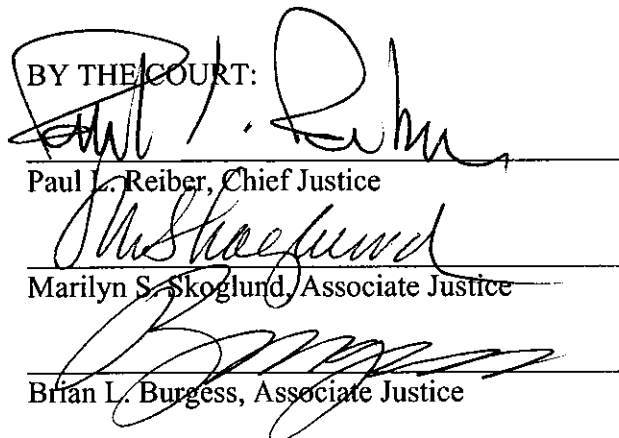 BY THE COURT:
Paul L. Reiber
Paul L. Reiber, Chief Justice
MSkoglund
Marilyn S. Skoglund, Associate Justice
Burgess
Brian L. Burgess, Associate Justice